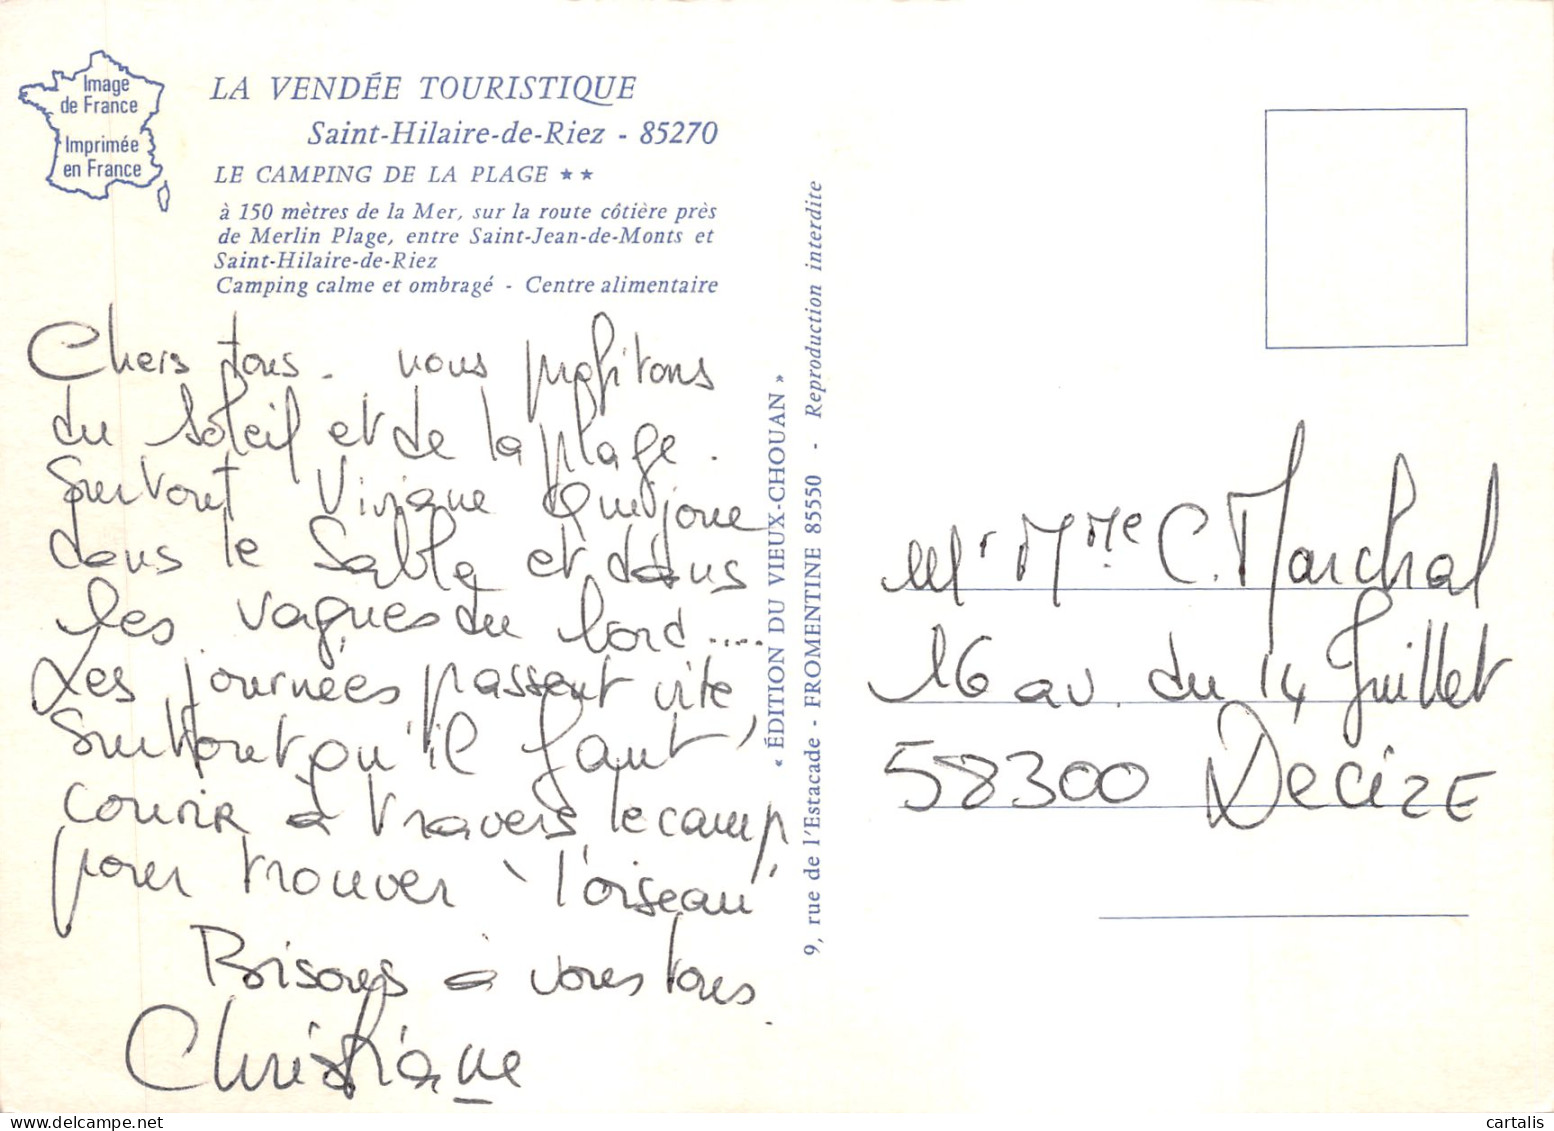 Image
de France
Imprimée
en France
LA VENDÉE TOURISTIQUE
Saint-Hilaire-de-Riez - 85270
LE CAMPING DE LA PLAGE ★★
à 150 mètres de la Mer, sur la route côtière près
de Merlin Plage, entre Saint-Jean-de-Monts et
Saint-Hilaire-de-Riez
Camping calme et ombragé - Centre alimentaire
Chers tous. nous profitons
du soleil et de la plage.
Surtout Viviane qui joue
dans le sable et dans
les vagues du bord.....
Les journées passent vite,
surtout qu'il faut
courir à travers le camp
pour trouver "l'oiseau"
Bisous à vous tous.
Christiane
« ÉDITION DU VIEUX-CHOUAN »
9, rue de l'Estacade - FROMENTINE 85550 - Reproduction interdite
Mr Mme C. Marchal
16 av. du 14 Juillet
58300 Decize
cartalis